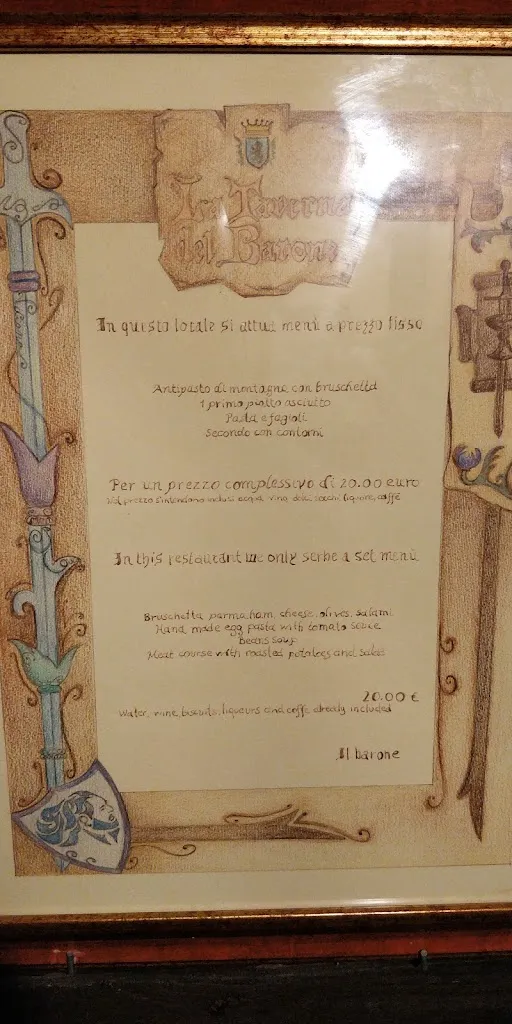 La Taverna
del Barone
In questo locale si attua menù a prezzo fisso
Antipasto di montagna con bruschetta
1 primo piatto asciutto
Pasta e fagioli
Secondo con contorni
Per un prezzo complessivo di 20.00 euro
Nel prezzo s'intendono inclusi acqua, vino, dolci secchi, liquore, caffè
In this restaurant we only serbe a set menù
Bruschetta, parma ham, cheese, olives, salami
Hand made egg pasta with tomato sauce
Beans soup
Meat course with roasted potatoes and salad
20.00 €
Water, wine, biscuits, liqueurs and coffe already included
Il barone